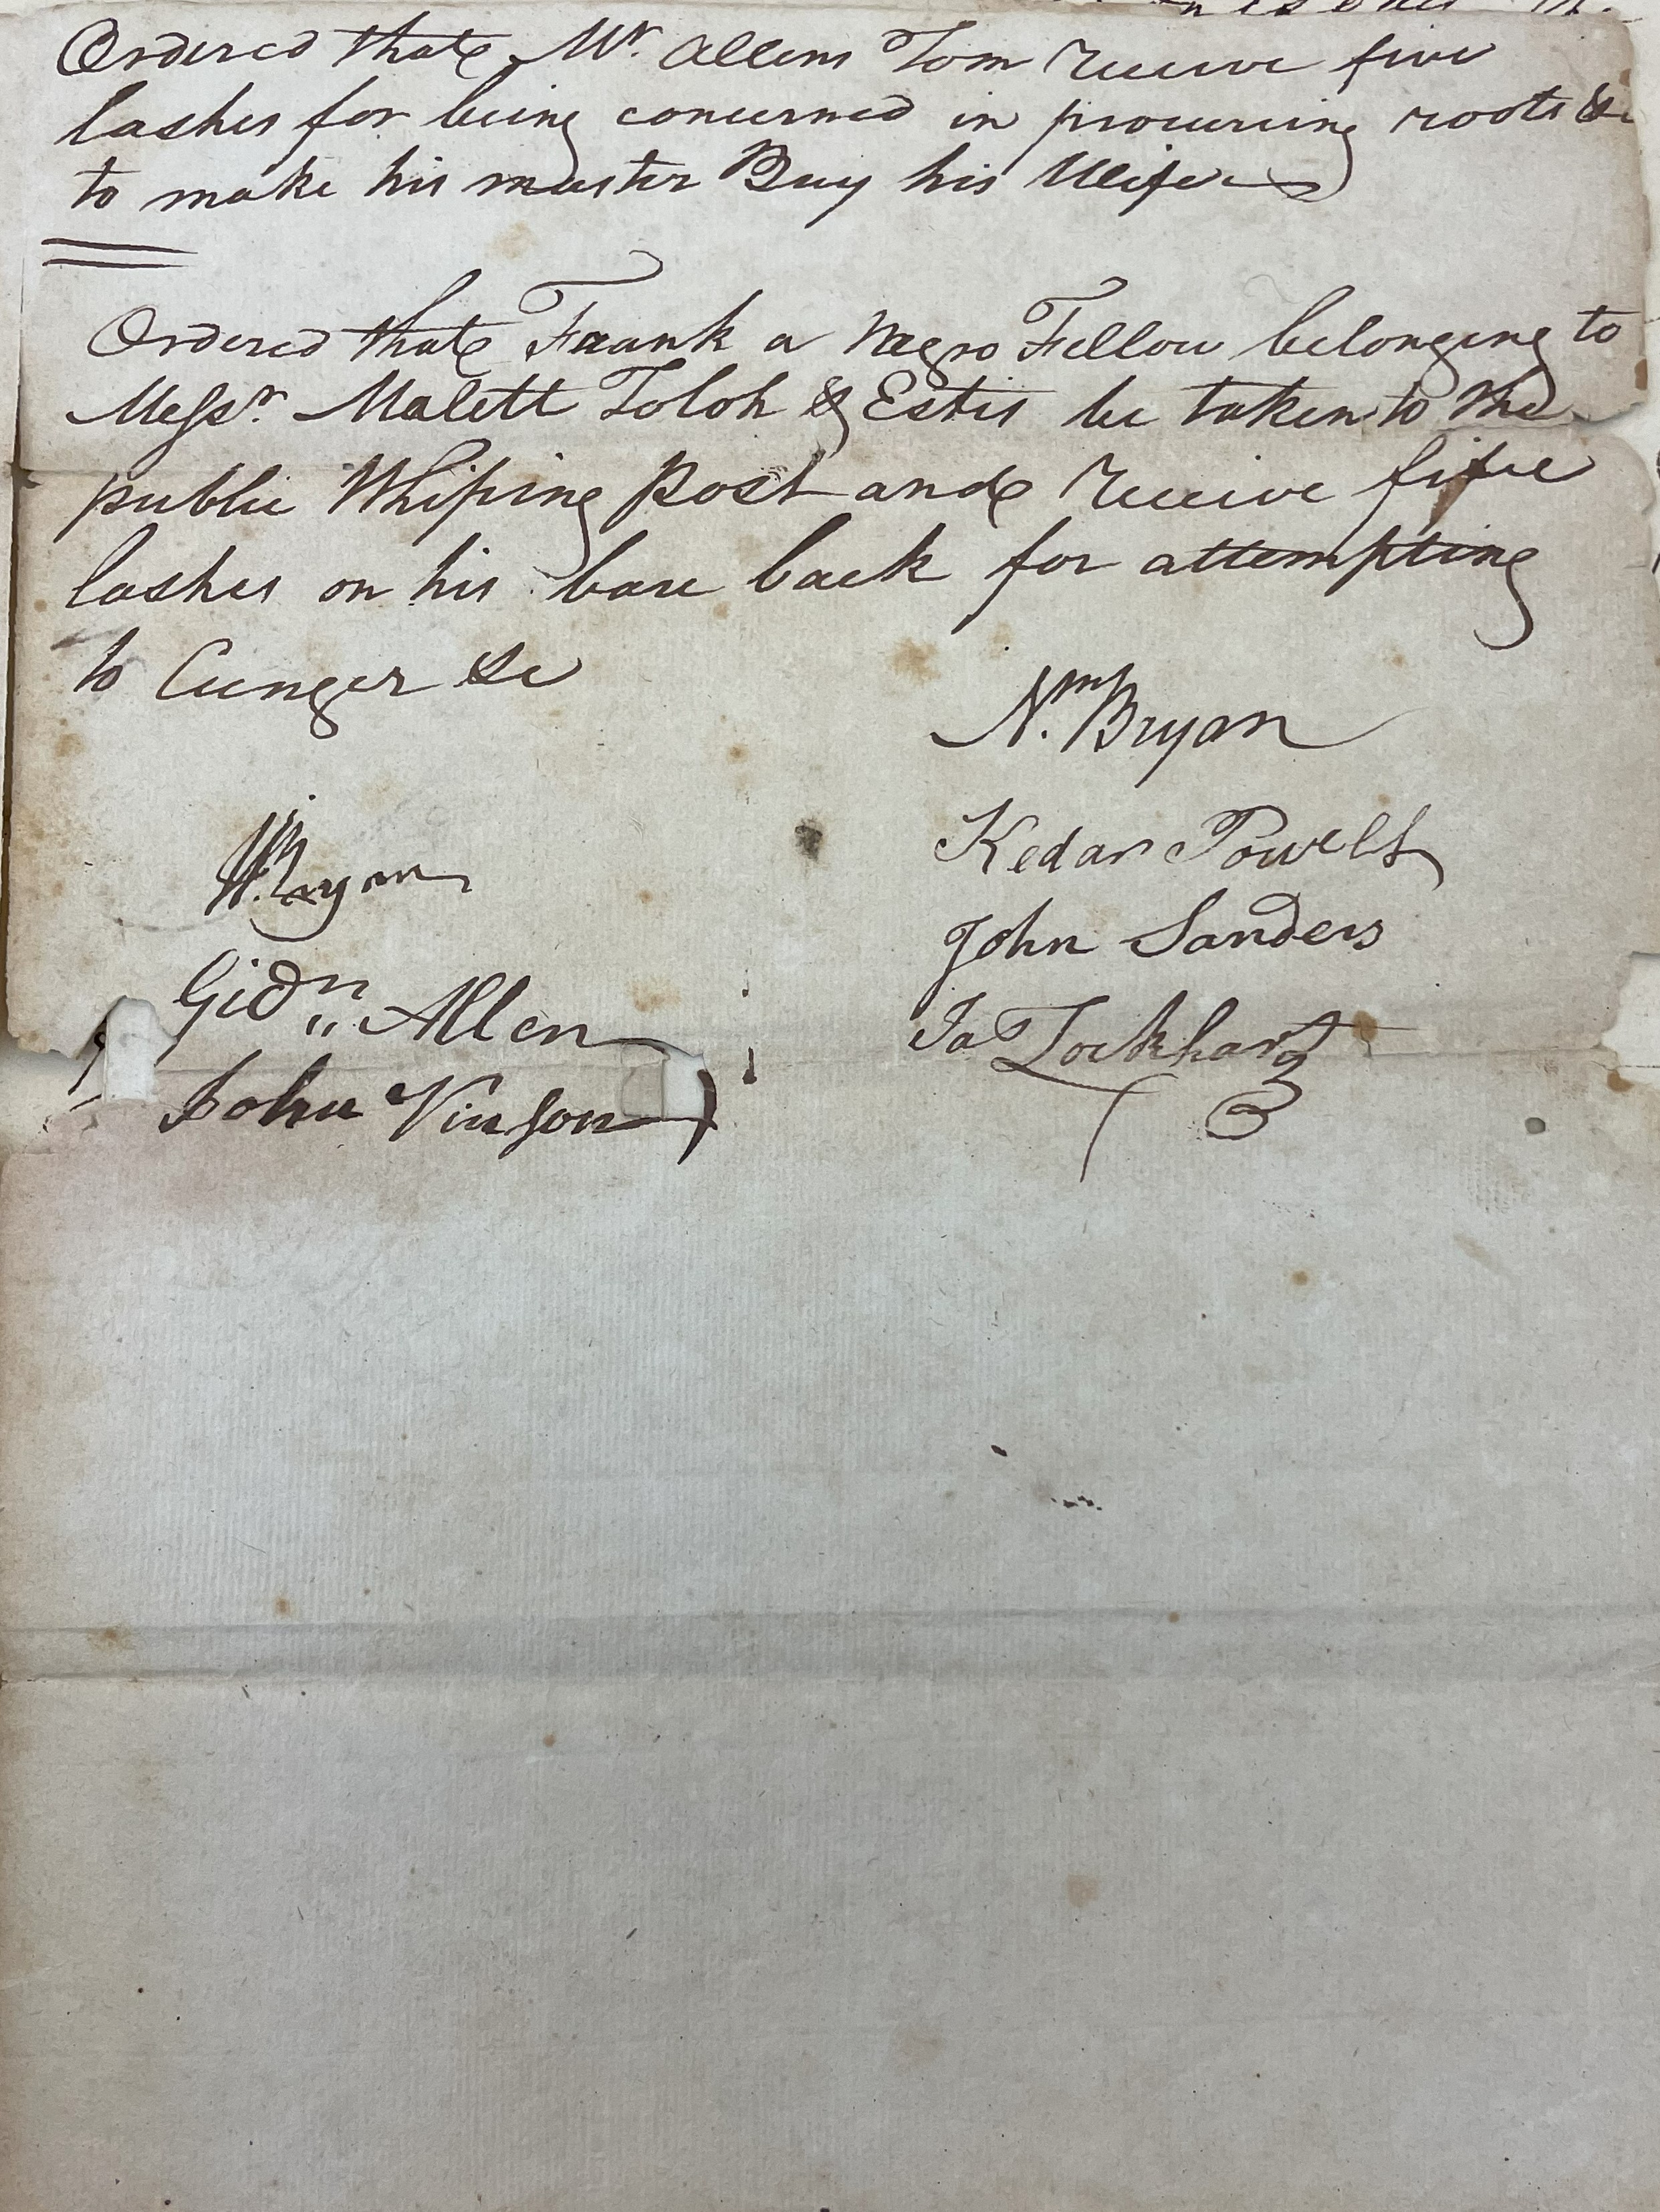 Ordered that Mr. Allens Tom Receive five
lashes for being concerned in procureing roots &c
to make his master Buy his Wife
Ordered that Fraank a Negro Fellow belonging to
Messrs. Malett Toloh & Estis be taken to the
public Whiping Post and Receive five
lashes on his bare back for attempting
to Cunger &c
Nm. Bryan
Kedar Powell
John Sanders
Jas Lockhart
W. Bryan
Gidn Allen
John Vinson